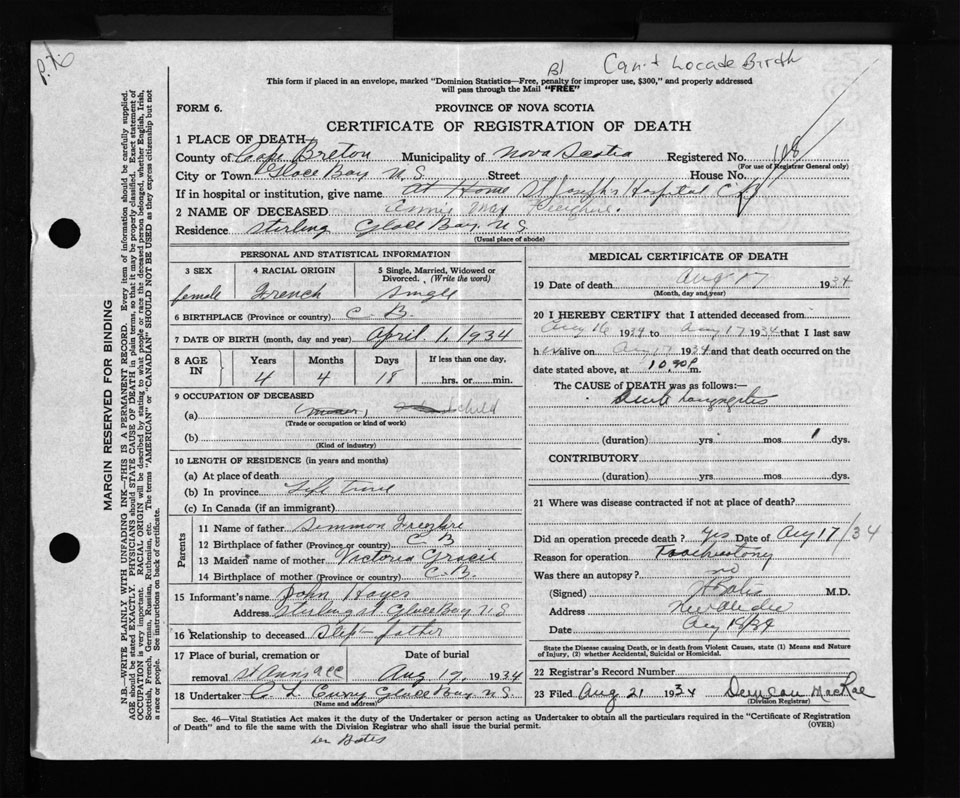 Can't Locate Birth
This form if placed in an envelope, marked "Dominion Statistics—Free, penalty for improper use, $300," and properly addressed
will pass through the Mail "FREE"
FORM 6.
PROVINCE OF NOVA SCOTIA
CERTIFICATE OF REGISTRATION OF DEATH
1 PLACE OF DEATH
County of Cape Breton Municipality of Nova Scotia Registered No. 198
(For use of Registrar General only)
City or Town Glace Bay N.S. Street House No.
If in hospital or institution, give name At Home St Joseph's Hospital
2 NAME OF DECEASED Annie May
Residence Sterling Glace Bay N.S
(Usual place of abode)
PERSONAL AND STATISTICAL INFORMATION
3 SEX 4 RACIAL ORIGIN 5 Single, Married, Widowed or Divorced. (Write the word)
female French Single
6 BIRTHPLACE (Province or country) C.B.
7 DATE OF BIRTH (month, day and year) April 1, 1934
8 AGE IN Years Months Days If less than one day,
4 4 18 hrs. or min.
9 OCCUPATION OF DECEASED
(a) child
(Trade or occupation or kind of work)
(b)
(Kind of industry)
10 LENGTH OF RESIDENCE (in years and months)
(a) At place of death
(b) In province Life time
(c) In Canada (if an immigrant)
Parents
11 Name of father Simmon
12 Birthplace of father (Province or country) C B
13 Maiden name of mother Victoria Gracie
14 Birthplace of mother (Province or country) C.B.
15 Informant's name John Hayes
Address Sterling st Glace Bay N.S
16 Relationship to deceased Step-father
17 Place of burial, cremation or removal Date of burial
St Anns Aug 17, 1934
18 Undertaker Curry Glace Bay N.S.
(Name and address)
MEDICAL CERTIFICATE OF DEATH
19 Date of death Aug 17 1934
(Month, day and year)
20 I HEREBY CERTIFY that I attended deceased from
Aug 16 1934 to Aug 17 1934 that I last saw
h er alive on Aug 17 1934 and that death occurred on the
date stated above, at 10.30 P m.
The CAUSE OF DEATH was as follows:—
(duration) yrs. mos. 1 dys.
CONTRIBUTORY
(duration) yrs. mos. dys.
21 Where was disease contracted if not at place of death?
Did an operation precede death? Yes Date of Aug 17/34
Reason for operation
Was there an autopsy? no
(Signed) Bates M.D.
Address New Aberdeen
Date Aug 18/34
State the Disease causing Death, or in death from Violent Causes, state (1) Means and Nature
of Injury, (2) whether Accidental, Suicidal or Homicidal.
22 Registrar's Record Number
23 Filed Aug 21 1934 MacRae
(Division Registrar)
Sec. 46—Vital Statistics Act makes it the duty of the Undertaker or person acting as Undertaker to obtain all the particulars required in the "Certificate of Registration
of Death" and to file the same with the Division Registrar who shall issue the burial permit.
(OVER)
Bates
MARGIN RESERVED FOR BINDING
N.B.—WRITE PLAINLY WITH UNFADING INK—THIS IS A PERMANENT RECORD. Every item of information should be carefully supplied.
AGE should be stated EXACTLY. PHYSICIANS should STATE CAUSE OF DEATH in plain terms, so that it may be properly classified. Exact statement of
OCCUPATION is very important. RACIAL ORIGIN will be described by stating to what people or race the deceased person belonged, whether English, Irish,
Scottish, French, German, Russian, Ruthenian, etc. The terms "AMERICAN" or "CANADIAN" SHOULD NOT BE USED as they express citizenship but not
a race or people. See instructions on back of certificate.